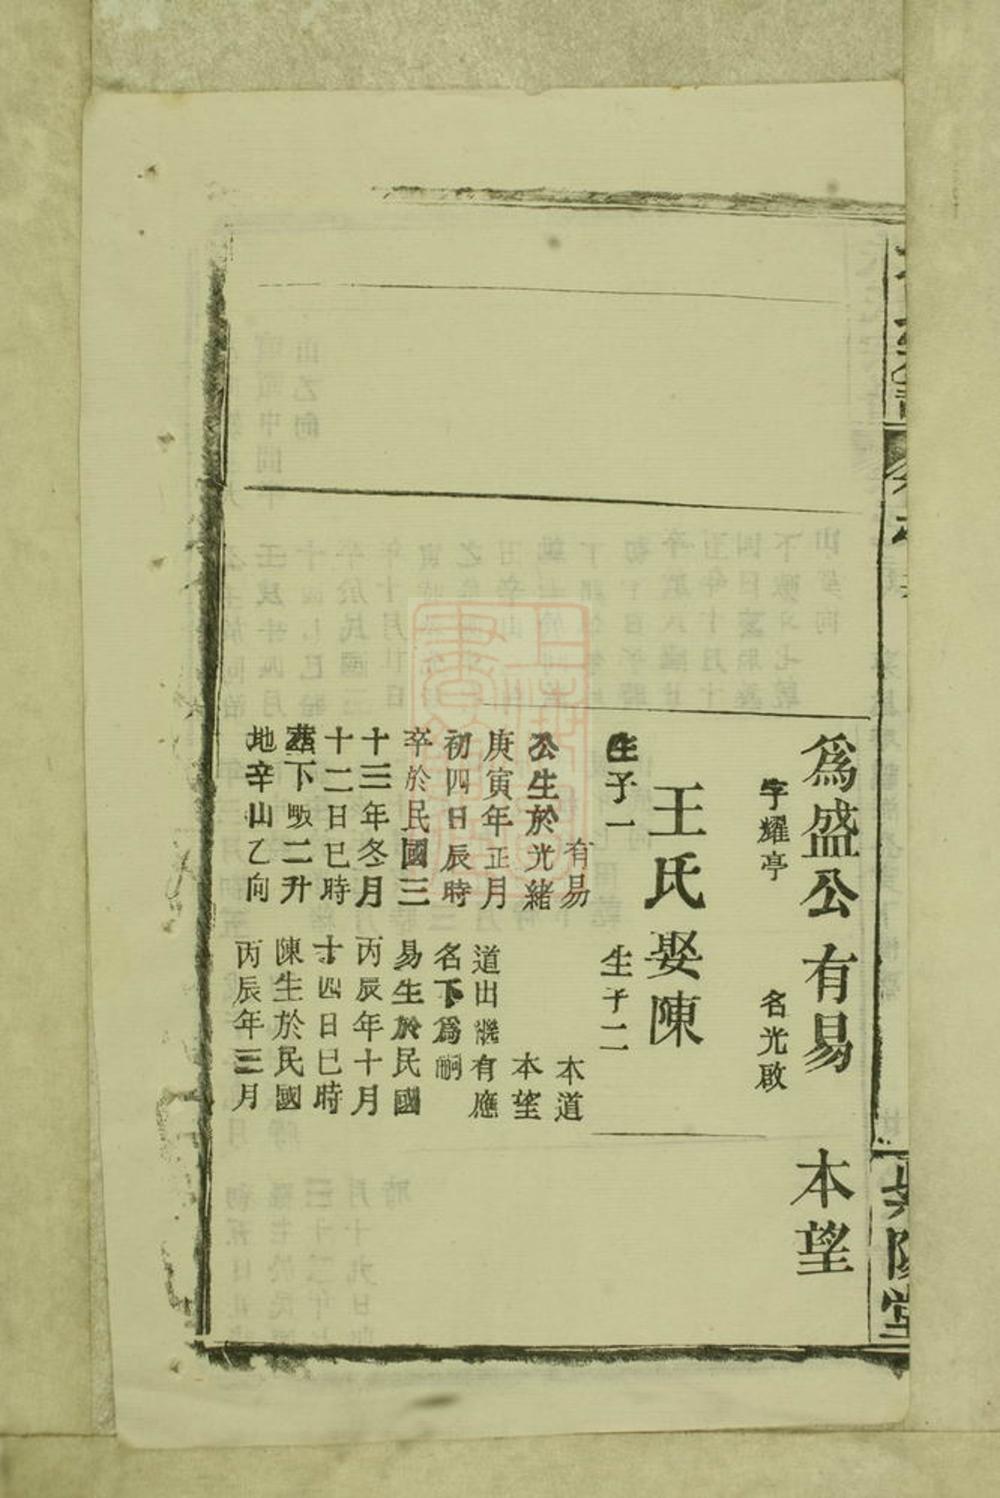 爲盛公
字耀亭
王氏
生子一
有易
公生於光緒
庚寅年正月
初四日辰時
卒於民國三
十三年冬月
十二日巳時
塟下畈二升
地辛山乙向
有易
名光啟
娶陳
生子二
本道
本望
道出繼有應
名下爲嗣
易生於民國
丙辰年十月
十四日巳時
陳生於民國
丙辰年三月
本望